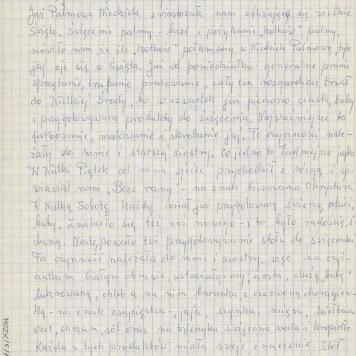 Już Palmowa Niedziela zwiastowała nam zbliżające się wielkie
Święto. Święcone palmy - bazi, połykanie "kotków" palmy,
mówiło nam że ile "kotków" połkniemy w Niedzielę Palmową, tyle
jaj zje się w Święta. Już od poniedziałku - generalne pranie
sprzątanie, trzepanie prasowanie, cały ten rozgardiasz trwał
do Wielkiej Środy, bo w czwartek już pieczono ciasta, baby
i przygotowywano produkty do święcenia. Najważniejsze to
farbowanie, malowanie i skrobanie jaj. Te czynności nale-
żały do mnie i starszej siostry. Co jedno to ładniejsze jajko
W Wielki Piątek od rana ojciec przychodził z rózgą i sp-
nam "Boże rany" - na znak biczowania Chrystusa.
W Wielką Sobotę każdy miał już przygotowaną
buty. Znalazło się też coś nowego - i to było radością i
dumą. Następowało też przygotowywanie stołu do święconka
Ta czynność należała do mnie i siostry, więc na
białym obrusie, ustawiałyśmy: ciasta, baby
lukrowaną, chleb a na nim baranka z czerwoną chorągiew-
ką - na znak zwycięstwa - jaja, szynka, mięsa, kiełbasa
ocet, chrzan, sól oraz na talerzyku święcona woda i kropidło
Każdy z tych produktów miała swoje znaczenie. Stół